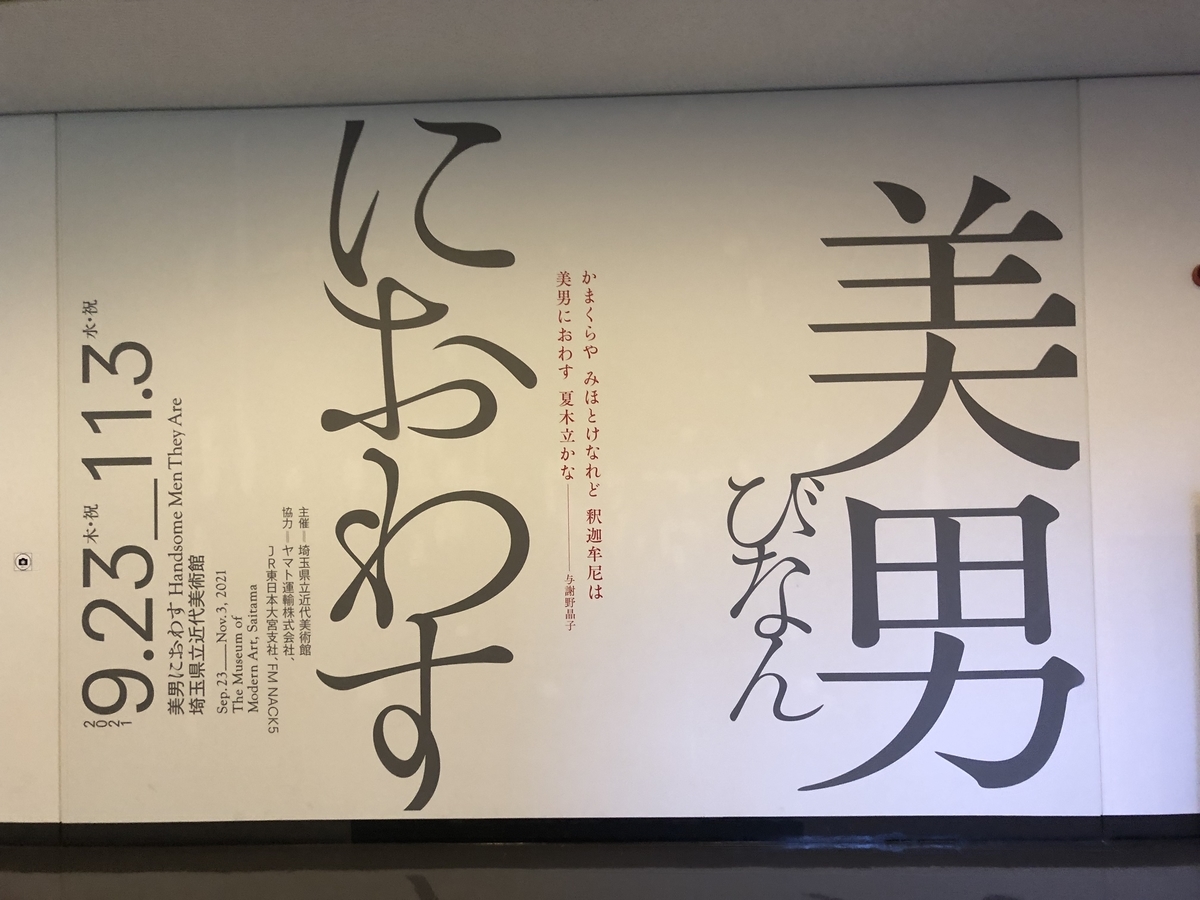 美男
びなん
におわす
かまくらや みほとけなれど 釈迦牟尼は
美男におわす 夏木立かな——与謝野晶子
主催＝埼玉県立近代美術館
協力＝ヤマト運輸株式会社、
ＪＲ東日本大宮支社、FM NACK5
2021
9.23木・祝__11.3水・祝
美男におわす Handsome Men They Are
埼玉県立近代美術館
Sep. 23——Nov. 3, 2021
The Museum of
Modern Art, Saitama